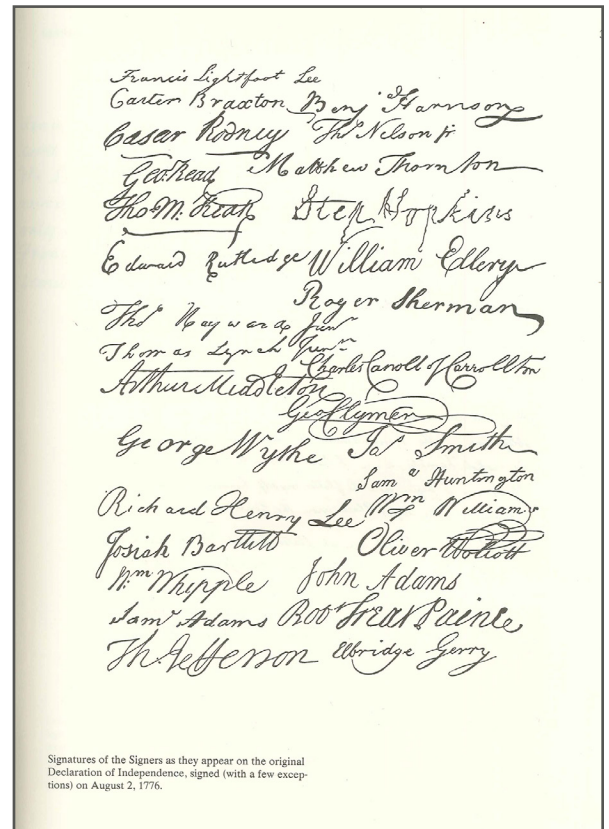 Francis Lightfoot Lee
Carter Braxton Benj Harrison
Caesar Rodney Thos Nelson jr
Geo Read Matthew Thornton
Tho M. Kean Step Hopkins
Edward Rutledge William Ellery
Roger Sherman
Thos Heyward Junr
Thomas Lynch Junr
Charles Carroll of Carrollton
Arthur Middleton
Geo Clymer
George Wythe Jas Smith
Saml Huntington
Richard Henry Lee Wm Williams
Josiah Bartlett Oliver Wolcott
Wm Whipple John Adams
Saml Adams Robt Treat Paine
Th Jefferson Elbridge Gerry
Signatures of the Signers as they appear on the original
Declaration of Independence, signed (with a few excep-
tions) on August 2, 1776.